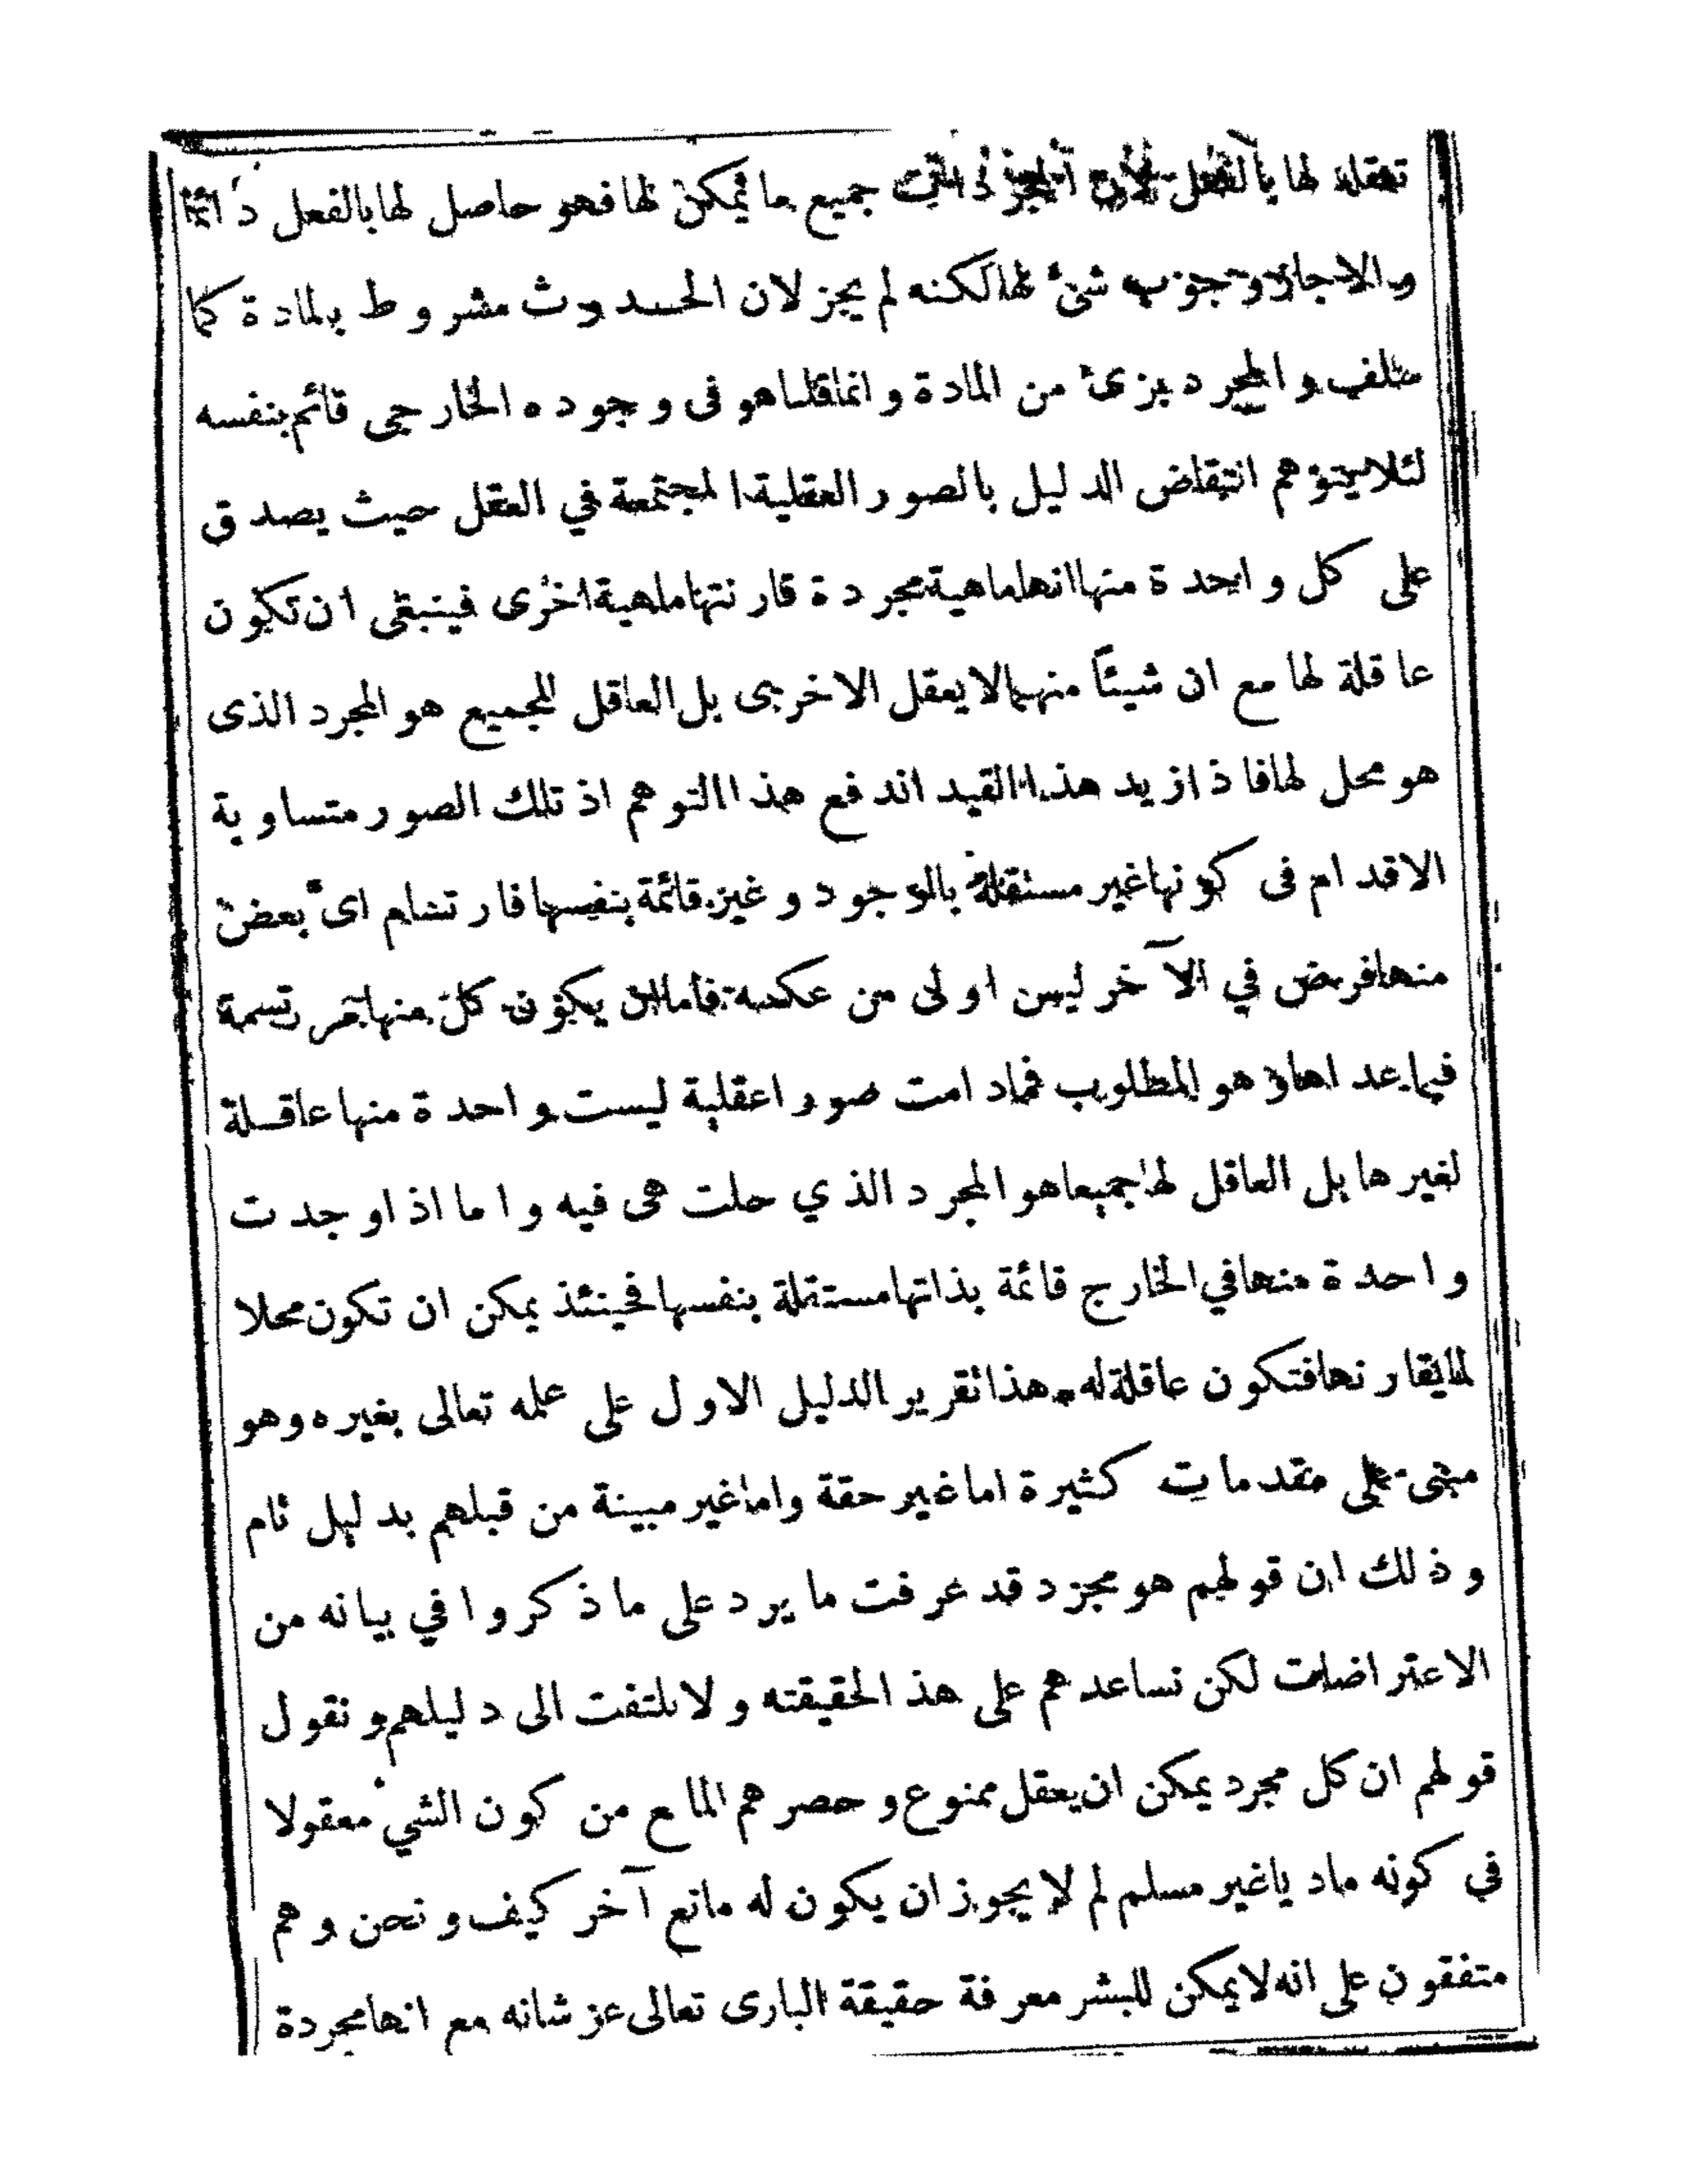 تعقله لها بالفعل لأن المجردات جميع ما يمكن لها فهو حاصل لها بالفعل دائما
والا جاز وجوب شئ لها لكنه لم يجز لان الحدوث مشروط بالمادة كما
سلف والمجرد برئ من المادة وانما قلنا هو فى وجوده الخارجى قائم بنفسه
لئلا يتوهم انتقاض الدليل بالصور العقلية المجتمعة في العقل حيث يصدق
على كل واحدة منها انها ماهية مجردة قارنتها ماهية اخرى فينبغى ان تكون
عاقلة لها مع ان شيئاً منهما لا يعقل الاخرى بل العاقل للجميع هو المجرد الذى
هو محل لها فاذا زيد هذا القيد اندفع هذا التوهم اذ تلك الصور متساوية
الاقدام فى كونها غير مستقلة بالوجود وغير قائمة بنفسها فارتسام اى بعض
منها فرض في الآخر ليس اولى من عكسه فاما ان يكون كل منها مرتسمة
فيما عداها وهو المطلوب فمادامت صورا عقلية ليست واحدة منها عاقلة
لغيرها بل العاقل لها جميعا هو المجرد الذي حلت هى فيه واما اذا وجدت
واحدة منها في الخارج قائمة بذاتها مستقلة بنفسها فحينئذ يمكن ان تكون محلا
لما يقارنها فتكون عاقلة له هذا تقرير الدليل الاول على علمه تعالى بغيره وهو
مبنى على مقدمات كثيرة اما غير حقة واما غير مبينة من قبلهم بدليل تام
وذلك ان قولهم هو مجرد قد عرفت ما يرد على ما ذكروا في بيانه من
الاعتراضات لكن نساعدهم على هذ الحقيقته ولا نلتفت الى دليلهم ونقول
قولهم ان كل مجرد يمكن ان يعقل ممنوع وحصرهم الما ع من كون الشئ معقولا
في كونه ماديا غير مسلم لم لا يجوز ان يكون له مانع آخر كيف ونحن وهم
متفقون على انه لا يمكن للبشر معرفة حقيقة البارى تعالى عز شانه مع انها مجردة